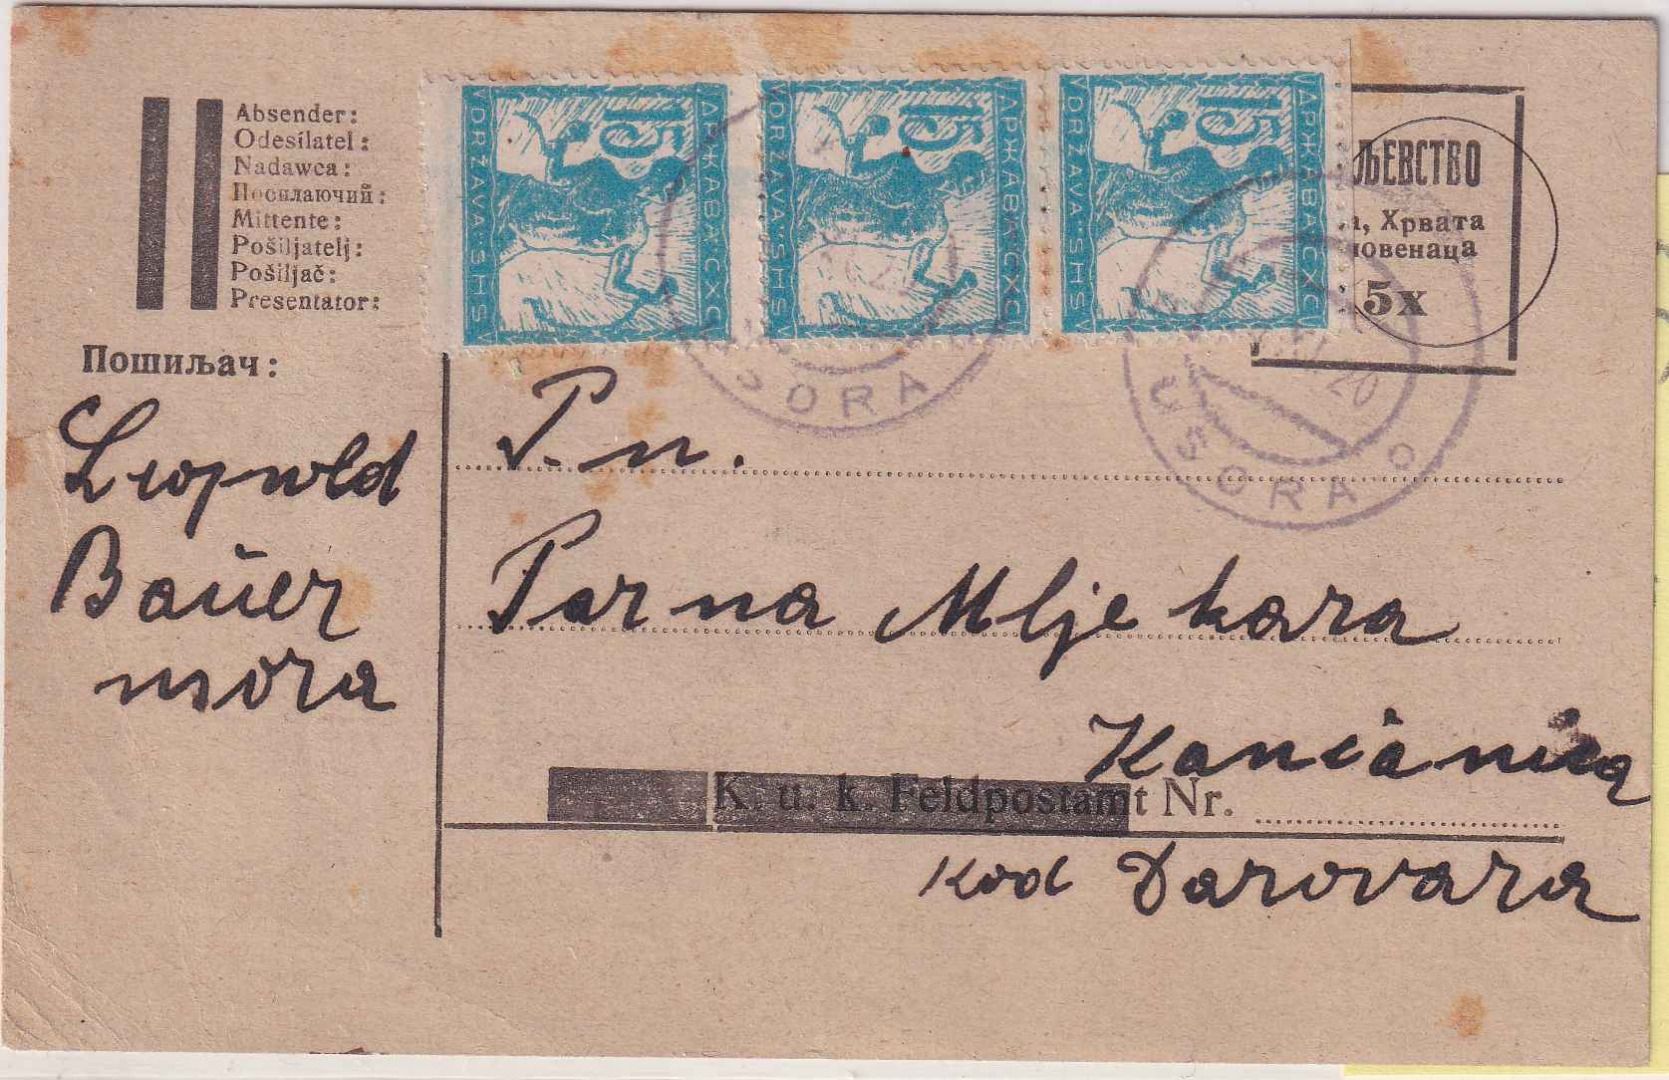 Absender:
Odesílatel:
Nadawca:
Посилаючий:
Mittente:
Pošiljatelj:
Pošiljač:
Presentator:
Пошиљач:
Leopold
Bauer
15 ДРЖАВА СХС DRŽAVA SHS
15 ДРЖАВА СХС DRŽAVA SHS
15 ДРЖАВА СХС DRŽAVA SHS
ЉЕВСТВО
а, Хрвата
ловенаца
5x
USORA
USORA
20
P. n.
Parna Mljekara
K. u. k. Feldpostamt Nr.
kod Darovara